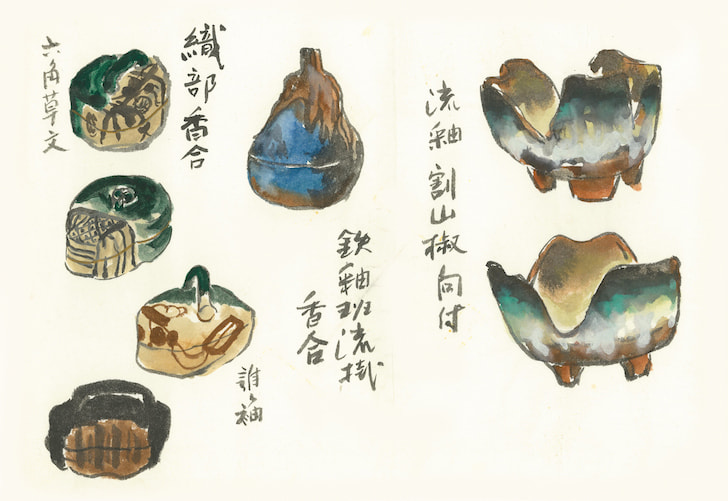 流釉 割山椒向付
鉄釉班流掛
香合
織部香合
誰ヶ袖
六角草文